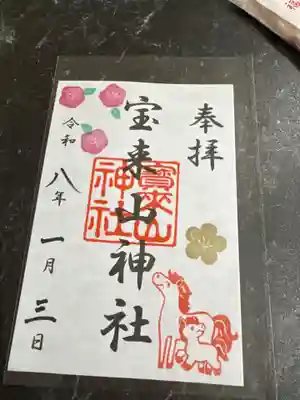 奉拝
宝来山神社
寳來山
神社
令和八年一月三日